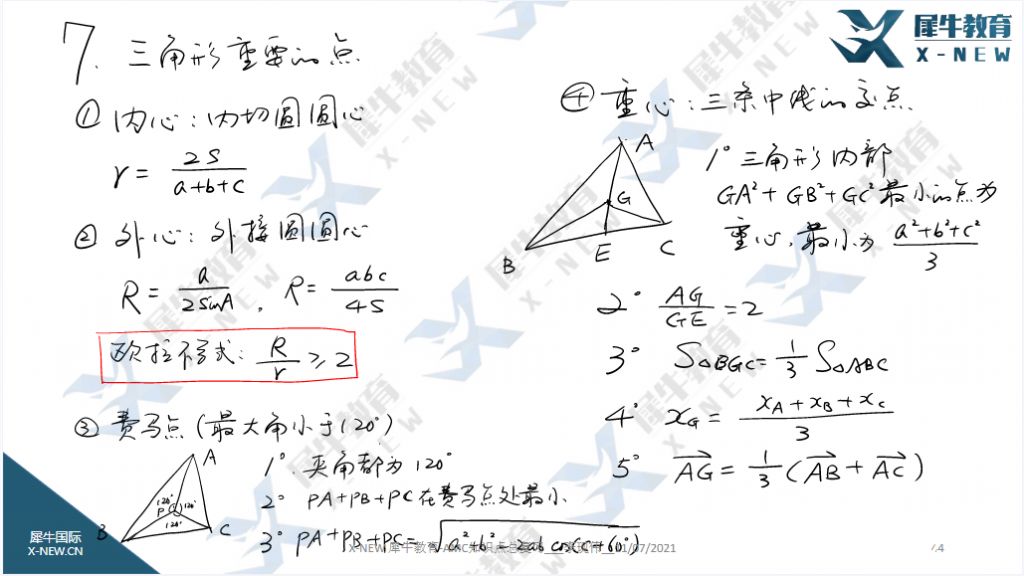 犀牛教育
X-NEW
7. 三角形重要的点
① 内心：内切圆圆心
r = 2S / (a+b+c)
② 外心：外接圆圆心
R = a / 2sinA , R = abc / 4S
欧拉不等式: R/r ≥ 2
③ 费马点 (最大角小于120°)
A
B
C
P
120°
120°
120°
1°. 夹角都为120°
2° PA+PB+PC在费马点处最小
3° PA+PB+PC = √(a²+b²-2ab cos(C+60°))
④ 重心：三条中线的交点.
A
G
B
E
C
1° 三角形内部
GA²+GB²+GC²最小的点为
重心, 最小为 (a²+b²+c²) / 3
2° AG/GE = 2
3° S△BGC = 1/3 S△ABC
4° xG = (xA+xB+xC) / 3
5° AG = 1/3 (AB + AC)
犀牛国际
X-NEW.CN
X-NEW 犀牛教育-AMC知识点总
/07/2021
44